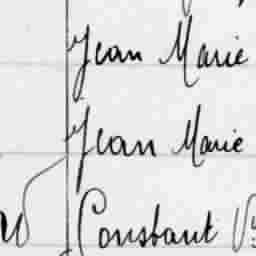 Jean Marie
Jean Marie
Constant